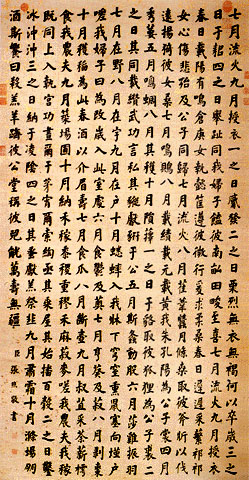 七月流火九月授衣一之日觱發二之日栗烈無衣無褐何以卒歲三之
日于耜四之日舉趾同我婦子饁彼南畝田畯至喜七月流火九月授衣
春日載陽有鳴倉庚女執懿筐遵彼微行爰求柔桑春日遲遲采蘩祁祁
女心傷悲殆及公子同歸七月流火八月萑葦蠶月條桑取彼斧斨以伐
遠揚猗彼女桑七月鳴鵙八月載績載玄載黃我朱孔陽為公子裳四月
秀葽五月鳴蜩八月其穫十月隕蘀一之日于貉取彼狐狸為公子裘二
之日其同載纘武功言私其豵獻豜于公五月斯螽動股六月莎雞振羽
七月在野八月在宇九月在戶十月蟋蟀入我牀下穹窒熏鼠塞向墐戶
嗟我婦子曰為改歲入此室處六月食鬱及薁七月亨葵及菽八月剝棗
十月穫稻為此春酒以介眉壽七月食瓜八月斷壺九月叔苴采荼薪樗
食我農夫九月築場圃十月納禾稼黍稷重穋禾麻菽麥嗟我農夫我稼
既同上入執宮功晝爾于茅宵爾索綯亟其乘屋其始播百穀二之日鑿
冰沖沖三之日納于凌陰四之日其蚤獻羔祭韭九月肅霜十月滌場朋
酒斯饗曰殺羔羊躋彼公堂稱彼兕觥萬壽無疆 臣張照敬書